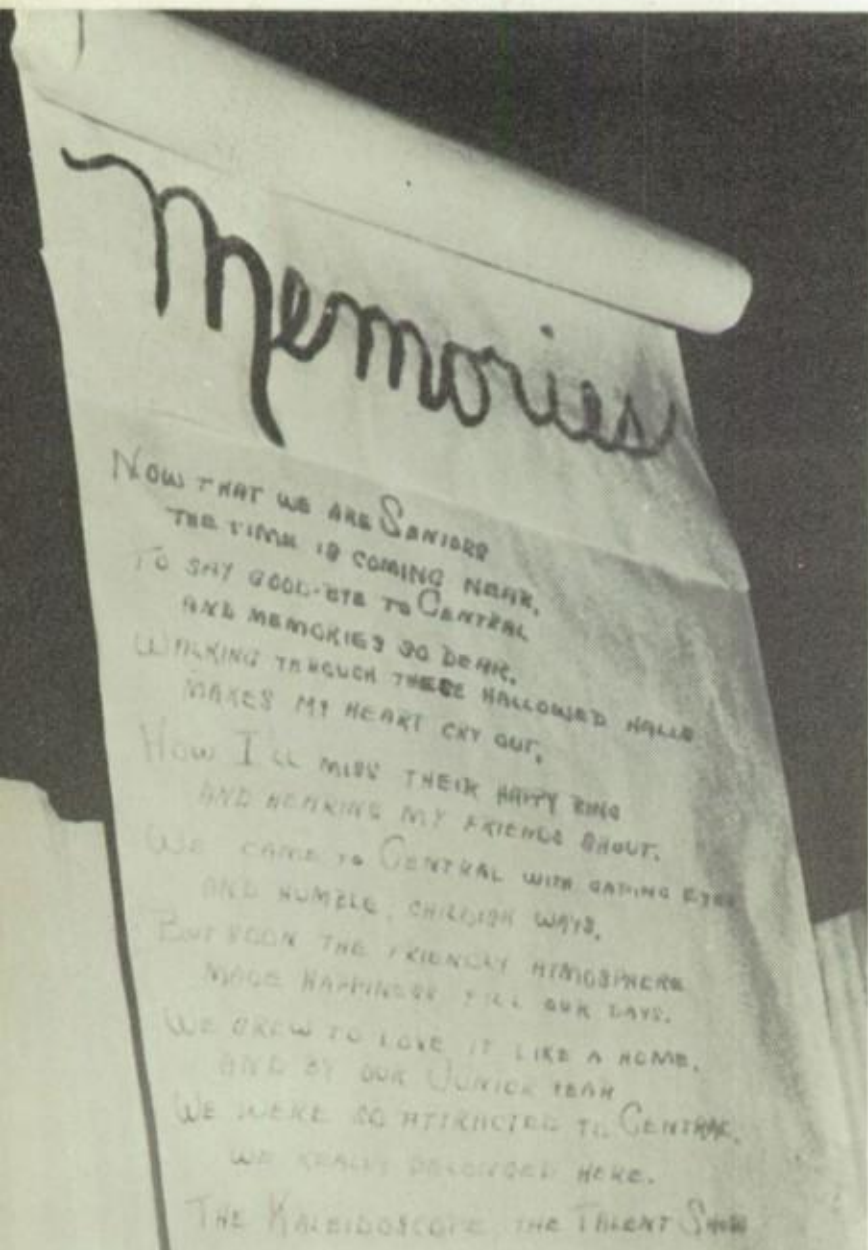 Memories
NOW THAT WE ARE SENIORS
THE TIME IS COMING NEAR,
TO SAY GOOD-BYE TO CENTRAL
AND MEMORIES SO DEAR.
WALKING THROUGH THESE HALLOWED HALLS
MAKES MY HEART CRY OUT,
HOW I'LL MISS THEIR HAPPY RING
AND HEARING MY FRIENDS SHOUT.
WE CAME TO CENTRAL WITH GAPING EYES
AND HUMBLE, CHILDISH WAYS,
BUT SOON THE FRIENDLY ATMOSPHERE
MADE HAPPINESS FILL OUR DAYS.
WE GREW TO LOVE IT LIKE A HOME,
AND BY OUR JUNIOR YEAR
WE WERE SO ATTRACTED TO CENTRAL,
WE REALLY BELONGED HERE.
THE KALEIDOSCOPE, THE TALENT SHOW